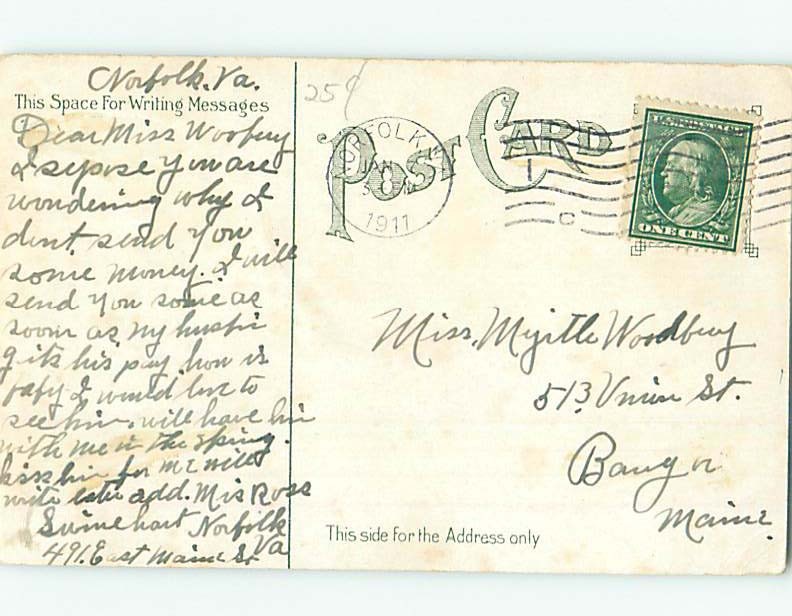 Norfolk. Va.
This Space For Writing Messages
Dear Miss Woobury
I sepose you are
wondering why I
dont send you
some money. I will
send you some as
soon as my husbi
gits his pay how is
I would love to
see him. will have him
with me in the spring.
kiss him for me will
write add. Mis Rose
Swinehart Norfolk
491. East Maine St. Va
25¢
POST CARD
NORFOLK
JAN
8
1911
C
ONE CENT
Miss. Myrtle Woodbury
513. Union St.
Bangor
Maine.
This side for the Address only